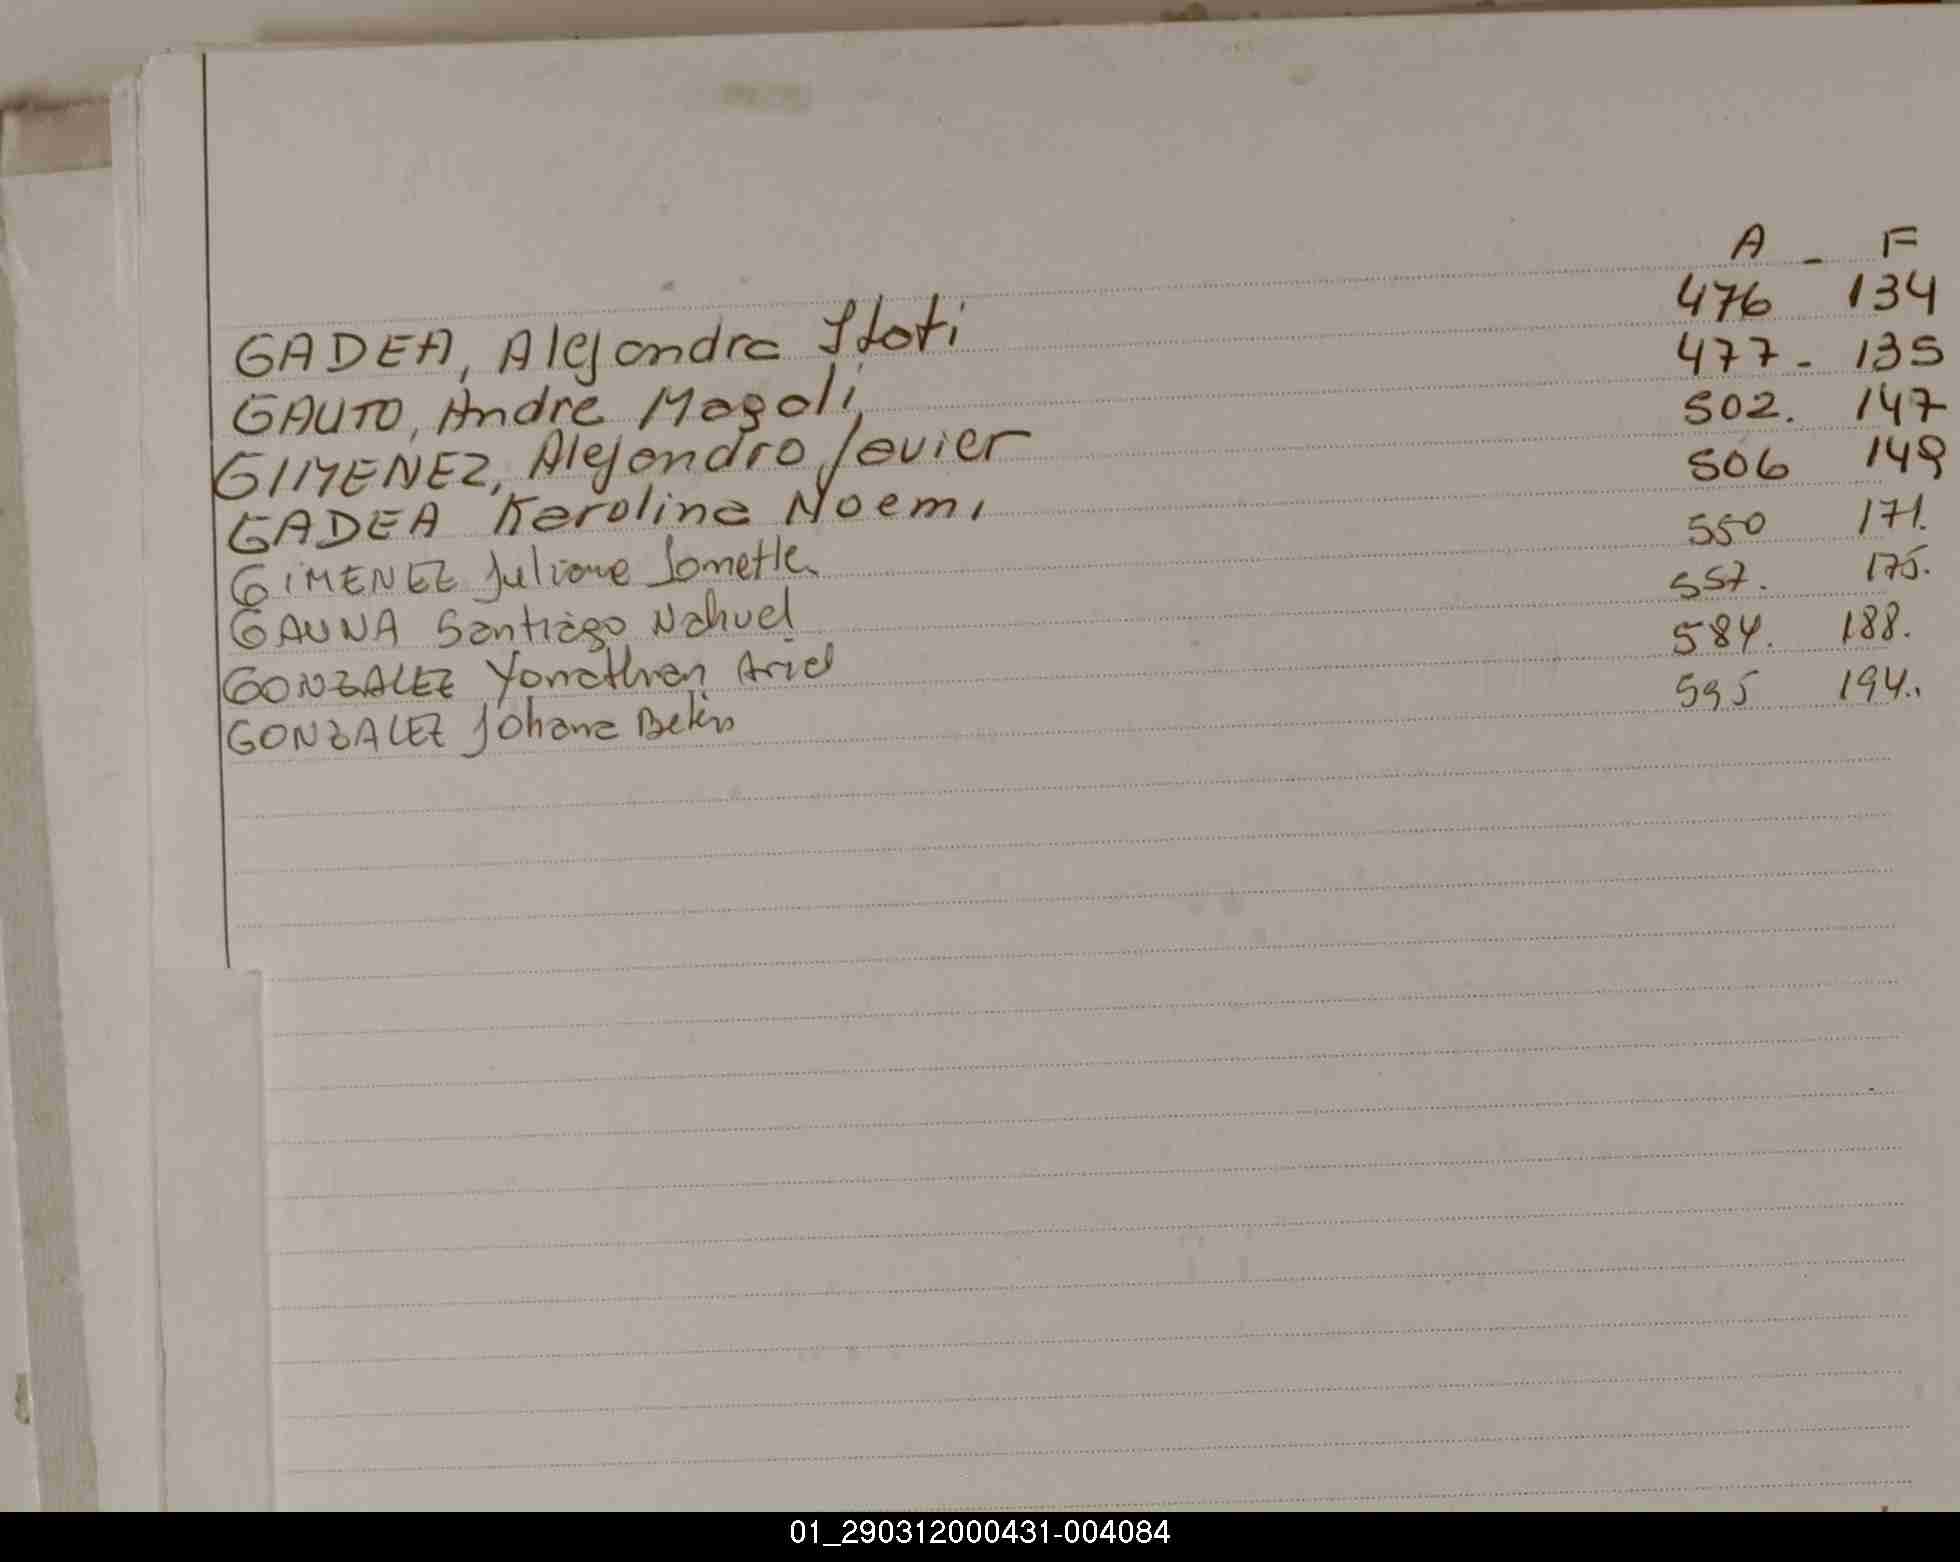 A - F
GADEA, Alejandra Itati 476 134
GAUTO, Andre Magali 477 - 135
GIMENEZ, Alejandro Javier 502. 147
GADEA Karolina Noemi 506 149
GIMENEZ Juliana 550 171.
GAUNA Santiago Nahuel 557. 175.
GONZALEZ Yonathan Ariel 584. 188.
GONZALEZ Johana Belén 595 194..
01_290312000431-004084